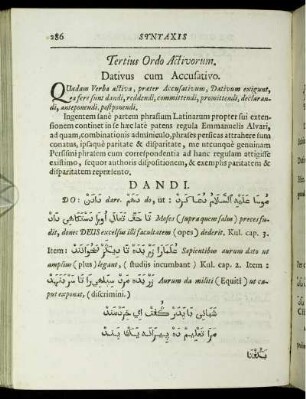 286 SYNTAXIS
Tertius Ordo Activorum.
Dativus cum Accusativo.
Quædam Verba activa, præter Accusativum, Dativum exigunt,
ea fere sunt dandi, reddendi, committendi, promittendi, declaran-
di, anteponendi, postponendi.
Ingentem sanè partem phrasium Latinarum propter sui exten-
sionem continet in se hæc latè patens regula Emmanuelis Alvari,
ad quam, combinationis adminiculo, phrases persicas attrahere sum
conatus, ipsáque paritate & disparitate, me utcunque genuinam
Persismi phrasem cum correspondentia ad hanc regulam attigisse
existimo; sequor authoris dispositionem, & exemplis paritatem &
disparitatem repræsento,
DANDI.
DO: دادن dare. دهم do, ut: موسا عليه السلام دعا كرد
تا حق تعالى اورا دستكاهى داد Moses (supra quem salus) precessu-
dit, donec DEUS excelsus illi facultatem (opes) dederit. Kul. cap. 3.
Item: علمارا زر بده تا ديكر بخوانند Sapientibus aurum dato ut
amplius (plus) legant, (studiis incumbant) Kul. cap. 2. Item:
زر بده مرد سپاهى را تا سر بدهد Aurum da militi (Equiti) ut ca-
put exponat, (discrimini.)
شبانى با پدر كفت اى خردمند
مرا تعليم ده پيرانه يك پند